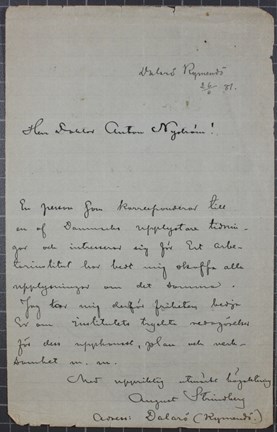 Dalarö Kymendö
2/6 81.
Herr Doktor Anton Nyström!
En person som korresponderar till
en af Danmarks upplystare tidnin-
gar och intresserar sig för Ert Arbe-
tarinstitut har bedt mig skaffa alla
upplysningar om det samma.
Jag tar mig derför friheten bedja
Er om institutets tryckta redogörelser
för dess uppkomst, plan och verk-
samhet m. m.
Med uppriktig utmärkt högaktning
August Strindberg
Adress: Dalarö (Kymendö.)